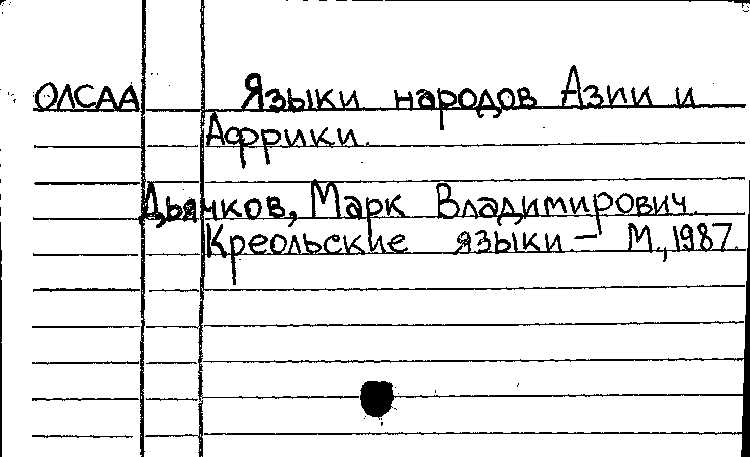 ОЛСАА Языки народов Азии и
Африки.
Дьячков, Марк Владимирович.
Креольские языки – М., 1987.